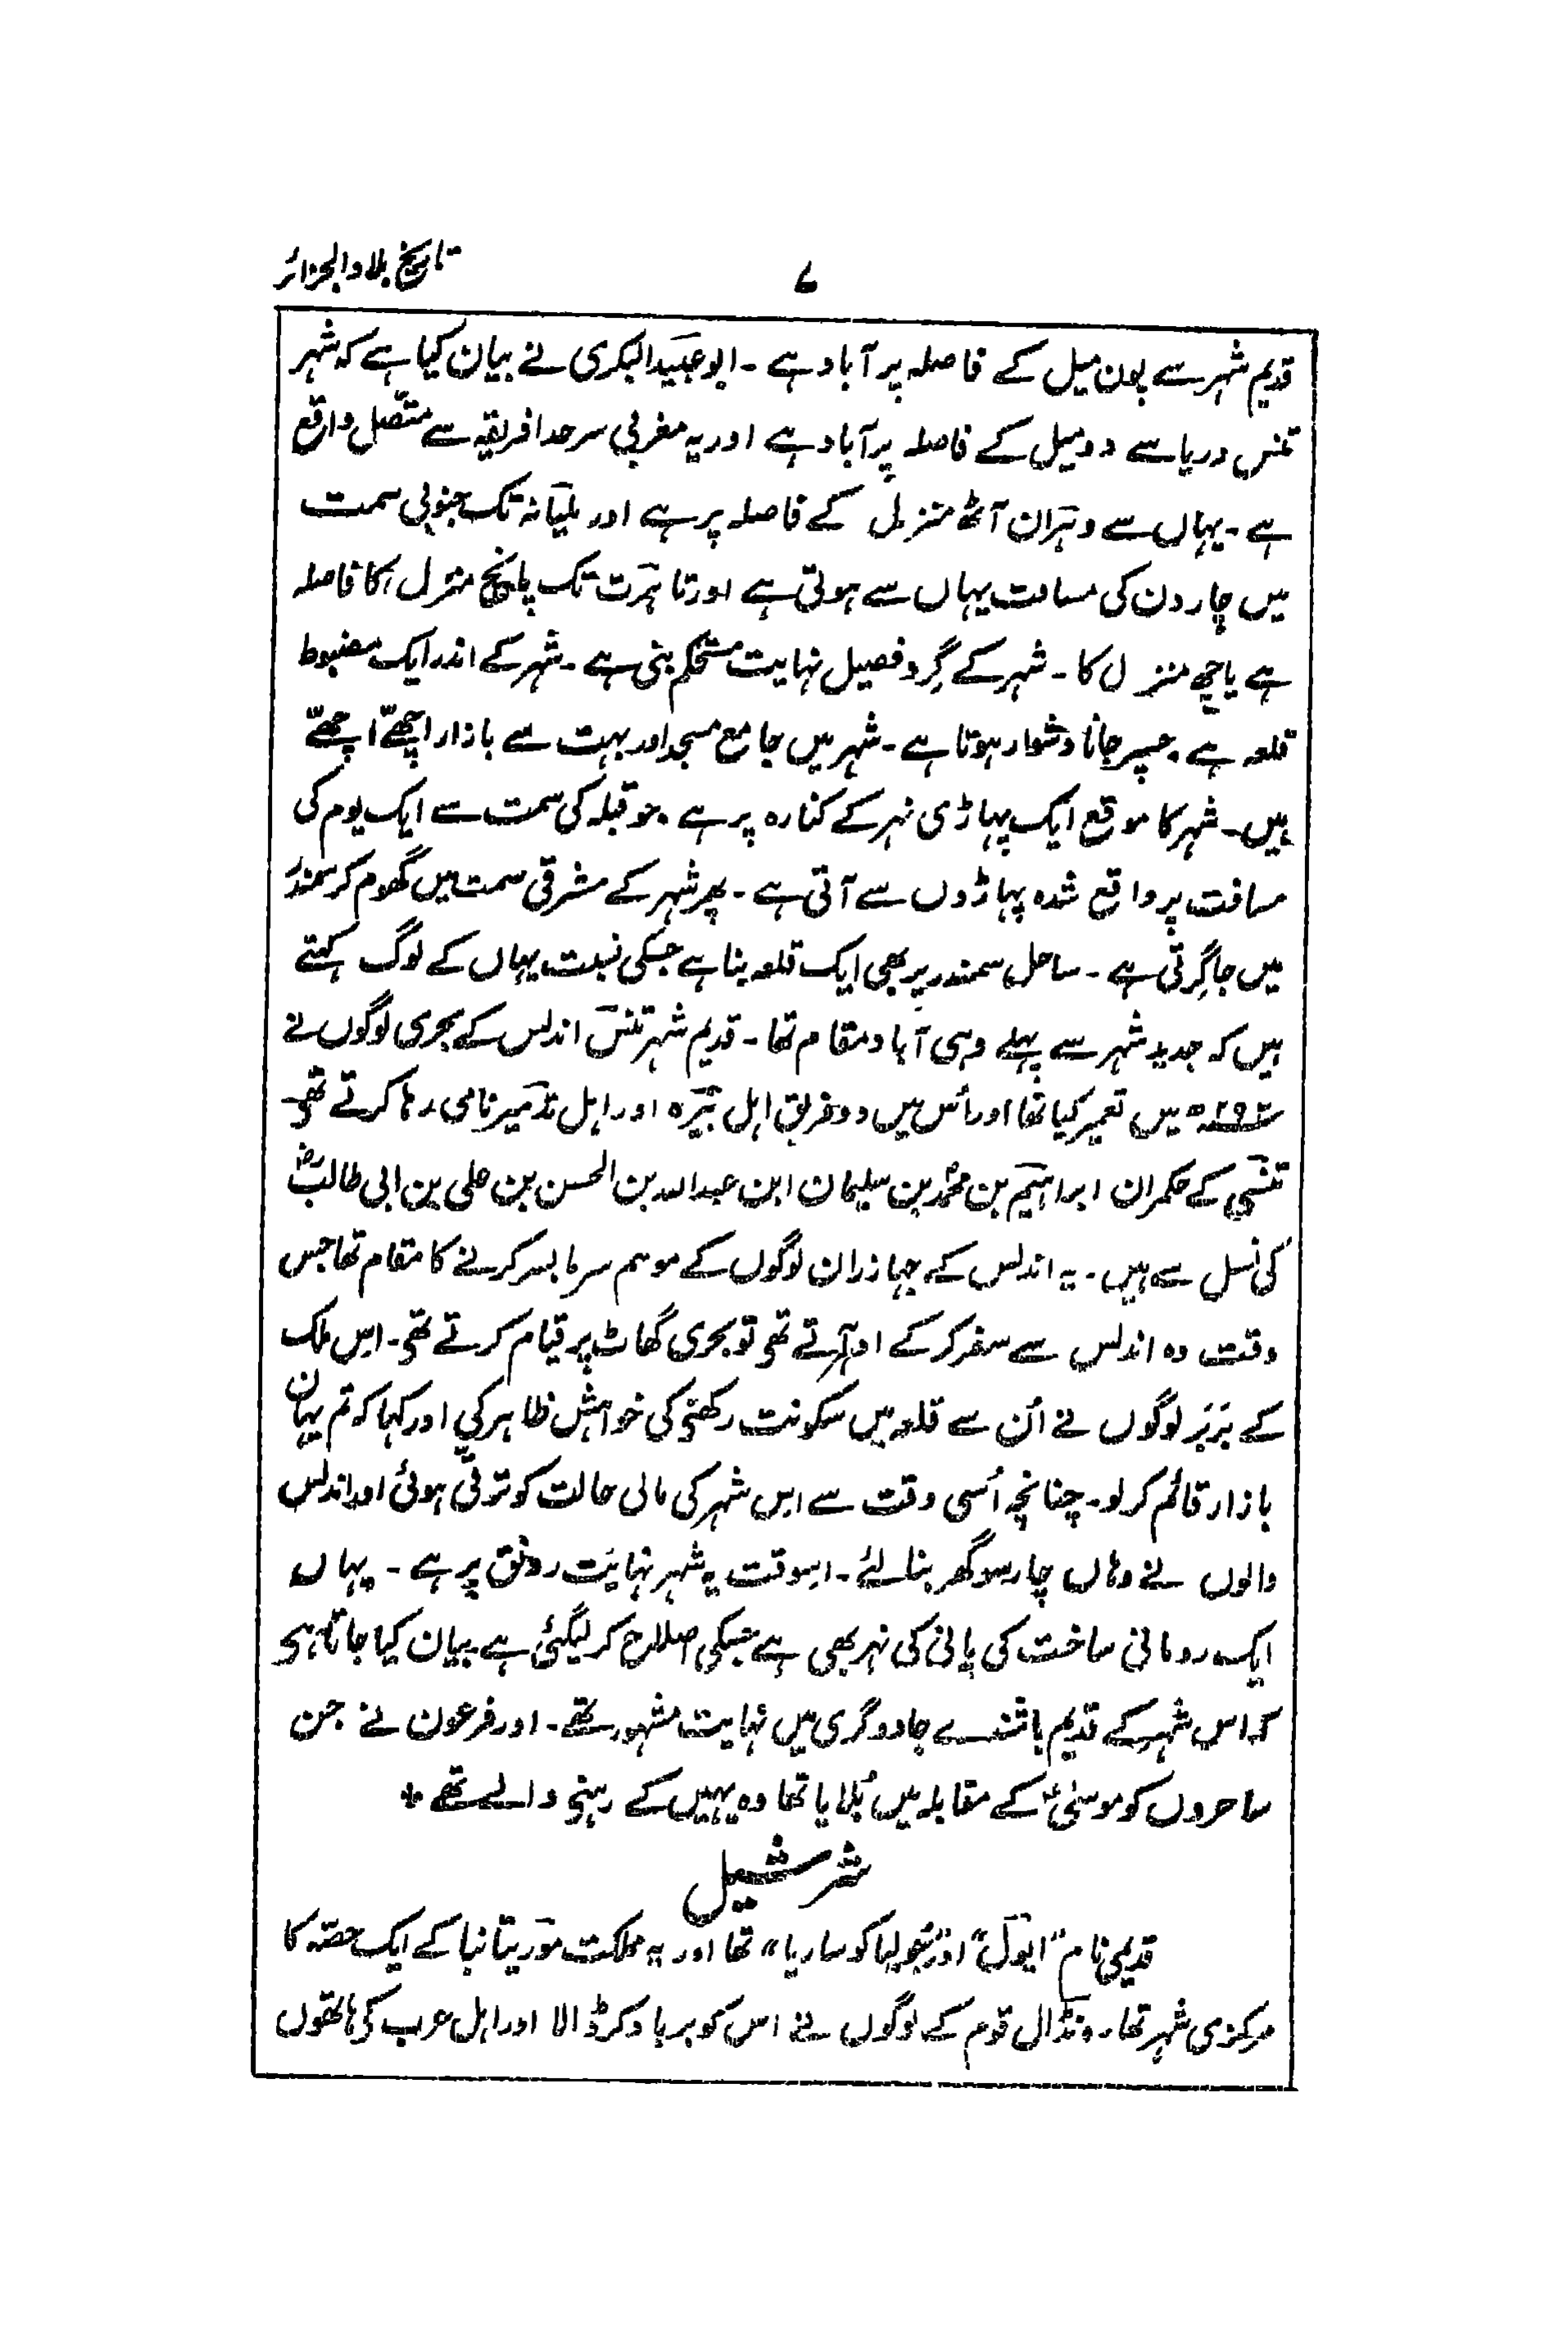 تاریخ بلاد الجزائر
۷
قدیم شہر سے پون میل کے فاصلہ پر آباد ہے ۔ ابو عبید البکری نے بیان کیا ہے کہ شہر
تنس دریا سے دو میل کے فاصلہ پر آباد ہے اور یہ مغربی سرحد افریقہ سے متصل واقع
ہے ۔ یہاں سے وہران آٹھ منزل کے فاصلہ پر ہے اور ملیانہ تک جنوبی سمت
میں چار دن کی مسافت یہاں سے ہوتی ہے اور تاہرت تک پانچ منزل کا فاصلہ
ہے یا چھ منزل کا ۔ شہر کے گرد فصیل نہایت مستحکم بنی ہے ۔ شہر کے اندر ایک مضبوط
قلعہ ہے جسپر جانا دشوار ہوتا ہے ۔ شہر میں جامع مسجد اور بہت سے بازار اچھّے اچھّے
ہیں ۔ شہر کا موقع ایک پہاڑی نہر کے کنارہ پر ہے ۔ جو قبلہ کی سمت سے ایک یوم کی
مسافت پر واقع شدہ پہاڑوں سے آتی ہے ۔ پھر شہر کے مشرقی سمت میں گھوم کر سمندر
میں جا گرتی ہے ۔ ساحل سمندر پر بھی ایک قلعہ بنا ہے جسکی نسبت یہاں کے لوگ کہتے
ہیں کہ جدید شہر سے پہلے وہی آباد مقام تھا ۔ قدیم شہر تنس اندلس کے بحری لوگوں نے
میں تعمیر کیا تھا اور اُس میں دو فریق اہل بَیرہ اور اہل تدمیر نامی رہا کرتے تھے ۔
تنسی کے حکمران ابراہیم بن محمد بن سلیمان ابن عبداللہ بن الحسن بن علی بن ابی طالبؓ
کی نسل سے ہیں ۔ یہ اندلس کے جہازران لوگوں کے موسم سرما بسر کرنے کا مقام تھا جس
وقت وہ اندلس سے سفر کر کے ادہر آتے تھے تو بحری گھاٹ پر قیام کرتے تھے ۔ اس ملک
کے بَربَر لوگوں نے اُن سے قلعہ میں سکونت رکھنے کی خواہش ظاہر کی اور کہا کہ تم یہاں
بازار قائم کر لو ۔ چنانچہ اُسی وقت سے اس شہر کی مالی حالت کو ترقی ہوئی اور اندلس
والوں نے وہاں چار سو گھر بنا لئے ۔ اسوقت یہ شہر نہایت رونق پر ہے ۔ یہاں
ایک رومانی ساخت کی پانی کی نہر بھی ہے جسکی اصلاح کر لیگئی ہے بیان کیا جاتا ہے
کہ اس شہر کے قدیم باشندے جادوگری میں نہایت مشہور تھے ۔ اور فرعون نے جن
ساحروں کو موسٰیؑ کے مقابلہ میں بُلایا تھا وہ یہیں کے رہنے والے تھے *
شرشیل
قدیمی نام "ایول" اور "جولیا کوساریا" تھا اور یہ مملکت موریتانیا کے ایک حصّہ کا
مرکزی شہر تھا ۔ ونڈال قوم کے لوگوں نے اس کو برباد کر ڈالا اور اہل عرب کی ہاتھوں